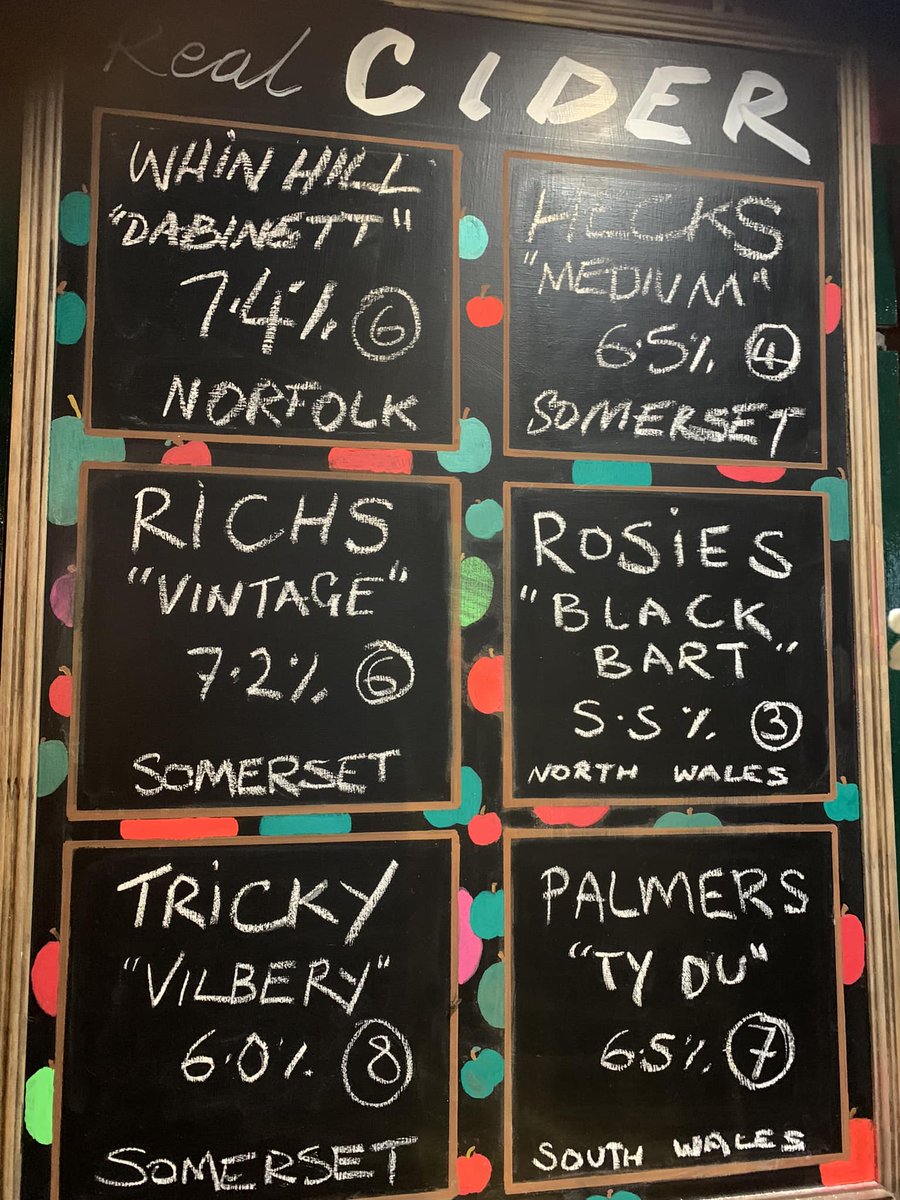 Real CIDER
WHIN HILL
"DABINETT"
7.4% 6
NORFOLK
HECKS
"MEDIUM"
6.5% 4
SOMERSET
RICHS
"VINTAGE"
7.2% 6
SOMERSET
ROSIES
"BLACK
BART"
5.5% 3
NORTH WALES
TRICKY
"VILBERY"
6.0% 8
SOMERSET
PALMERS
"TY DU"
6.5% 7
SOUTH WALES